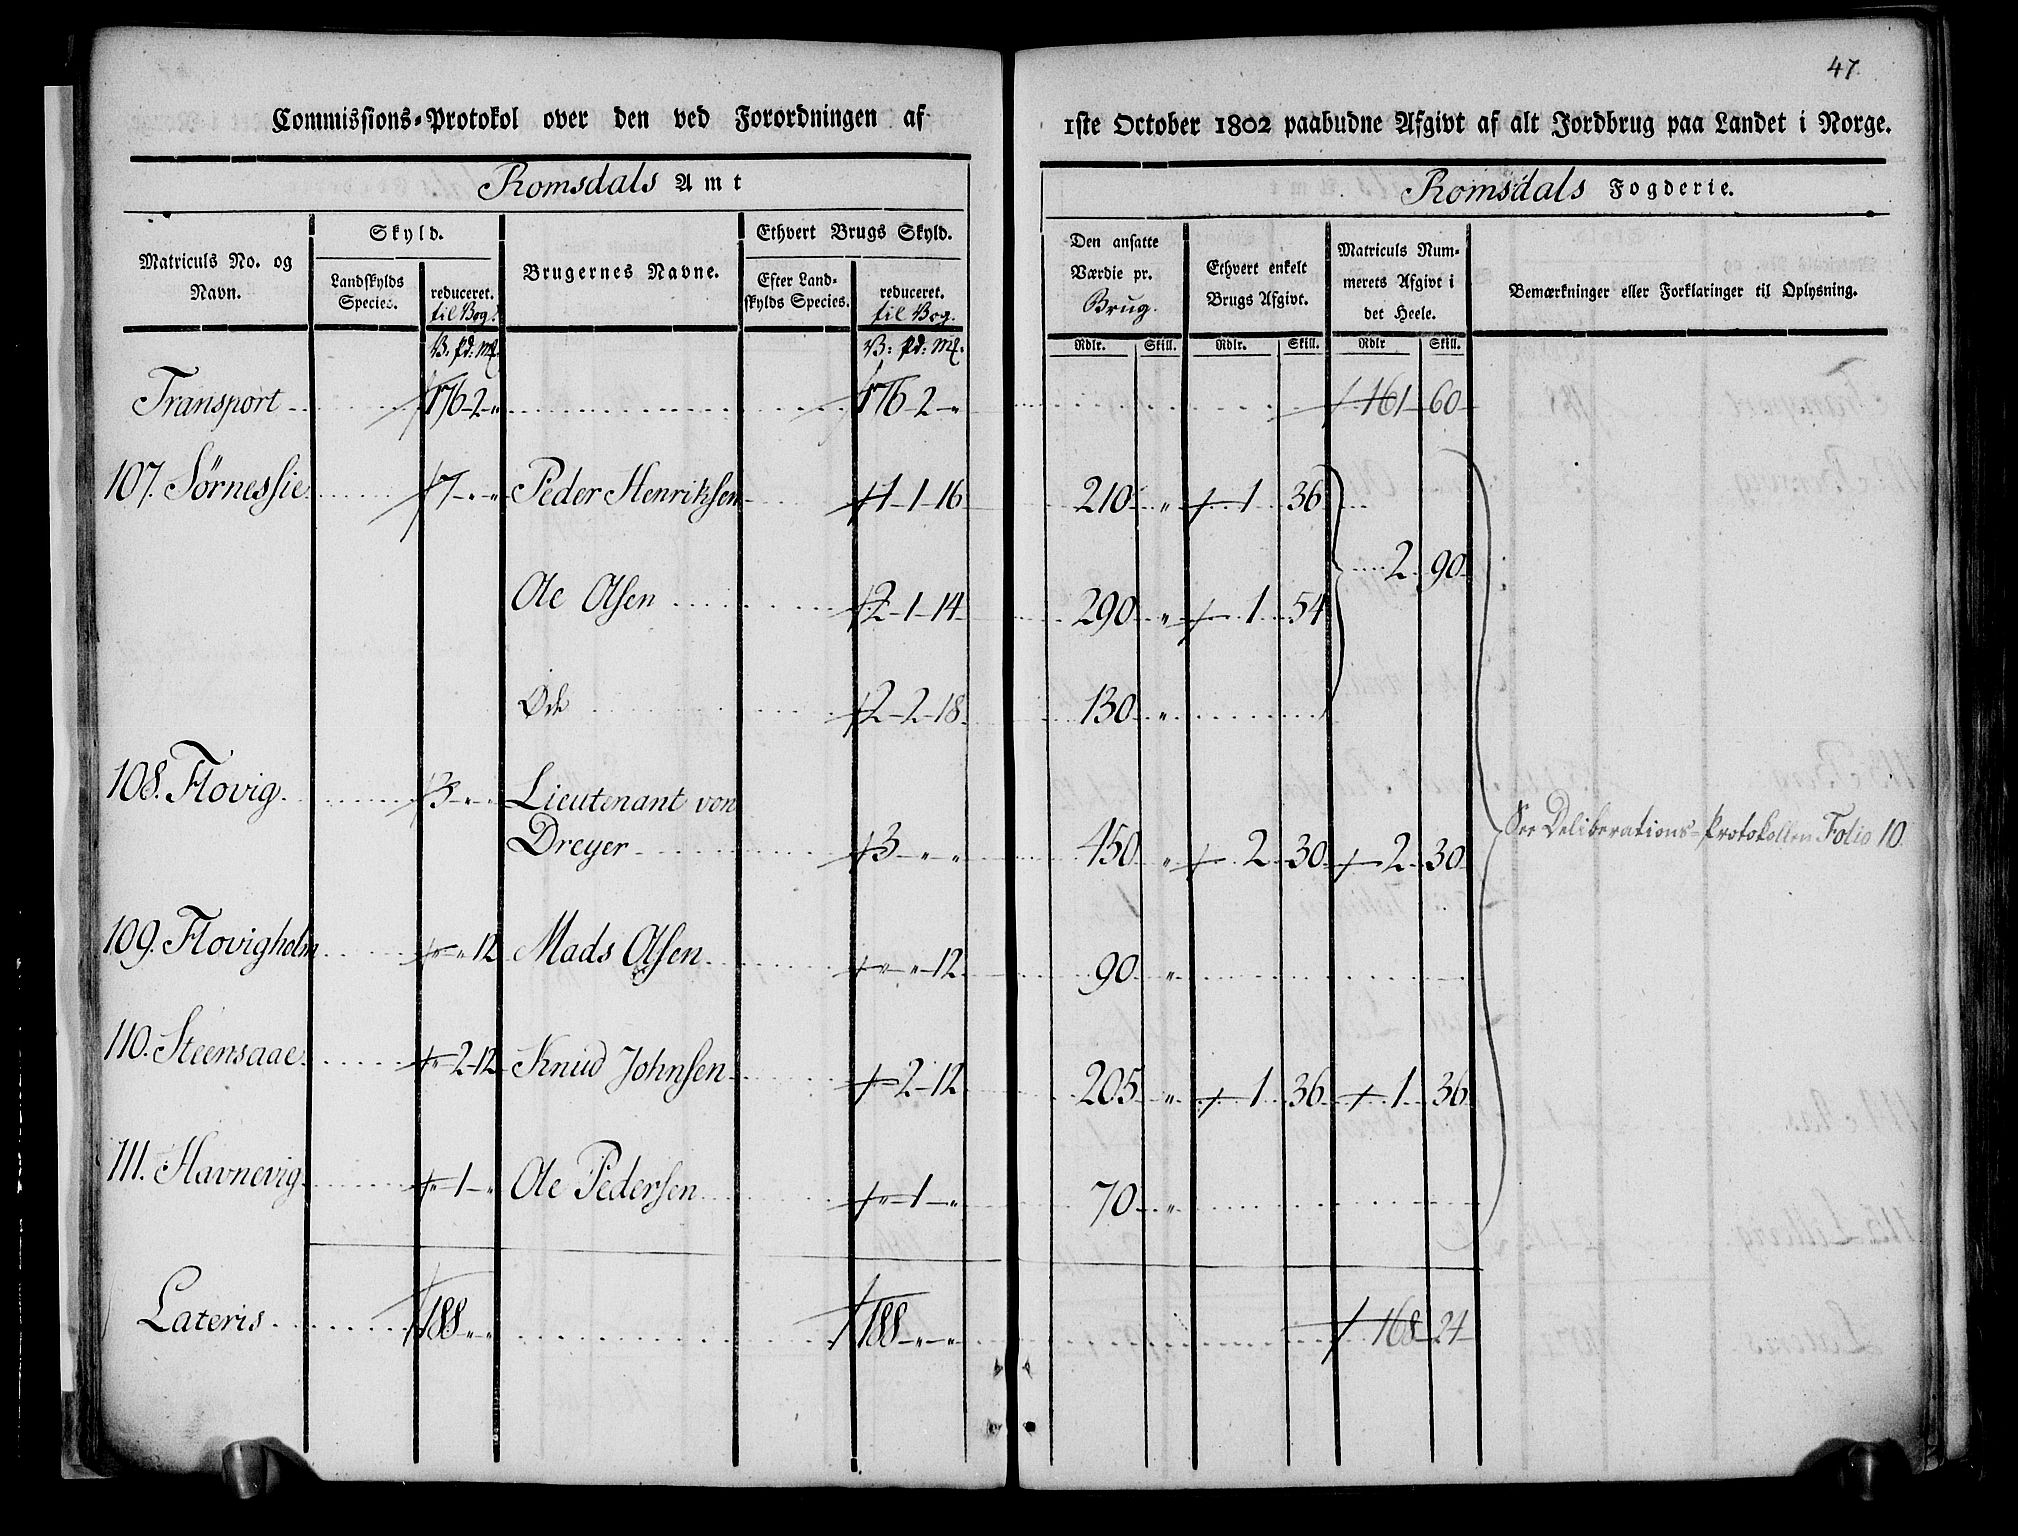 47.
Commissions-Protokol over den ved Forordningen af 1ste October 1802 paabudne Afgivt af alt Jordbrug paa Landet i Norge.
Romsdals Amt
Romsdals Fogderie.
Matriculs No. og Navn.
Skyld.
Landskylds Species.
reduceret. til Bog.
Brugernes Navne.
Ethvert Brugs Skyld.
Efter Landskylds Species.
reduceret. til Bog.
Den ansatte Værdie pr. Brug.
Ethvert enkelt Brugs Afgivt.
Matriculs Nummerets Afgivt i det Heele.
Bemærkninger eller Forklaringer til Oplysning.
V: pd: mk. V: pd: mk. Rdlr. Skill. Rdlr. Skill. Rdlr Skill.
Transport 176-2-" 176-2-" 161 60
107. Sørnessie 7-"-" Peder Henriksen 1-1-16 210 " 1 36
2 90
Ole Olsen 2-1-14 290 " 1 54
Øde 2-2-18 130 "
108. Flovig 3-"-" Lieutenant von
Dreyer 3-"-" 450 " 2 30 2 30
See Deliberations-Protokollen Folio 10.
109. Flovigholm "-"-12 Mads Olsen "-"-12 90 "
110. Steensaae "-2-12 Knud Johnsen "-2-12 205 " 1 36 1 36
111. Havnevig "-1-" Ole Pedersen "-1-" 70 "
Lateris 188-"-" 188-"-" 168 24